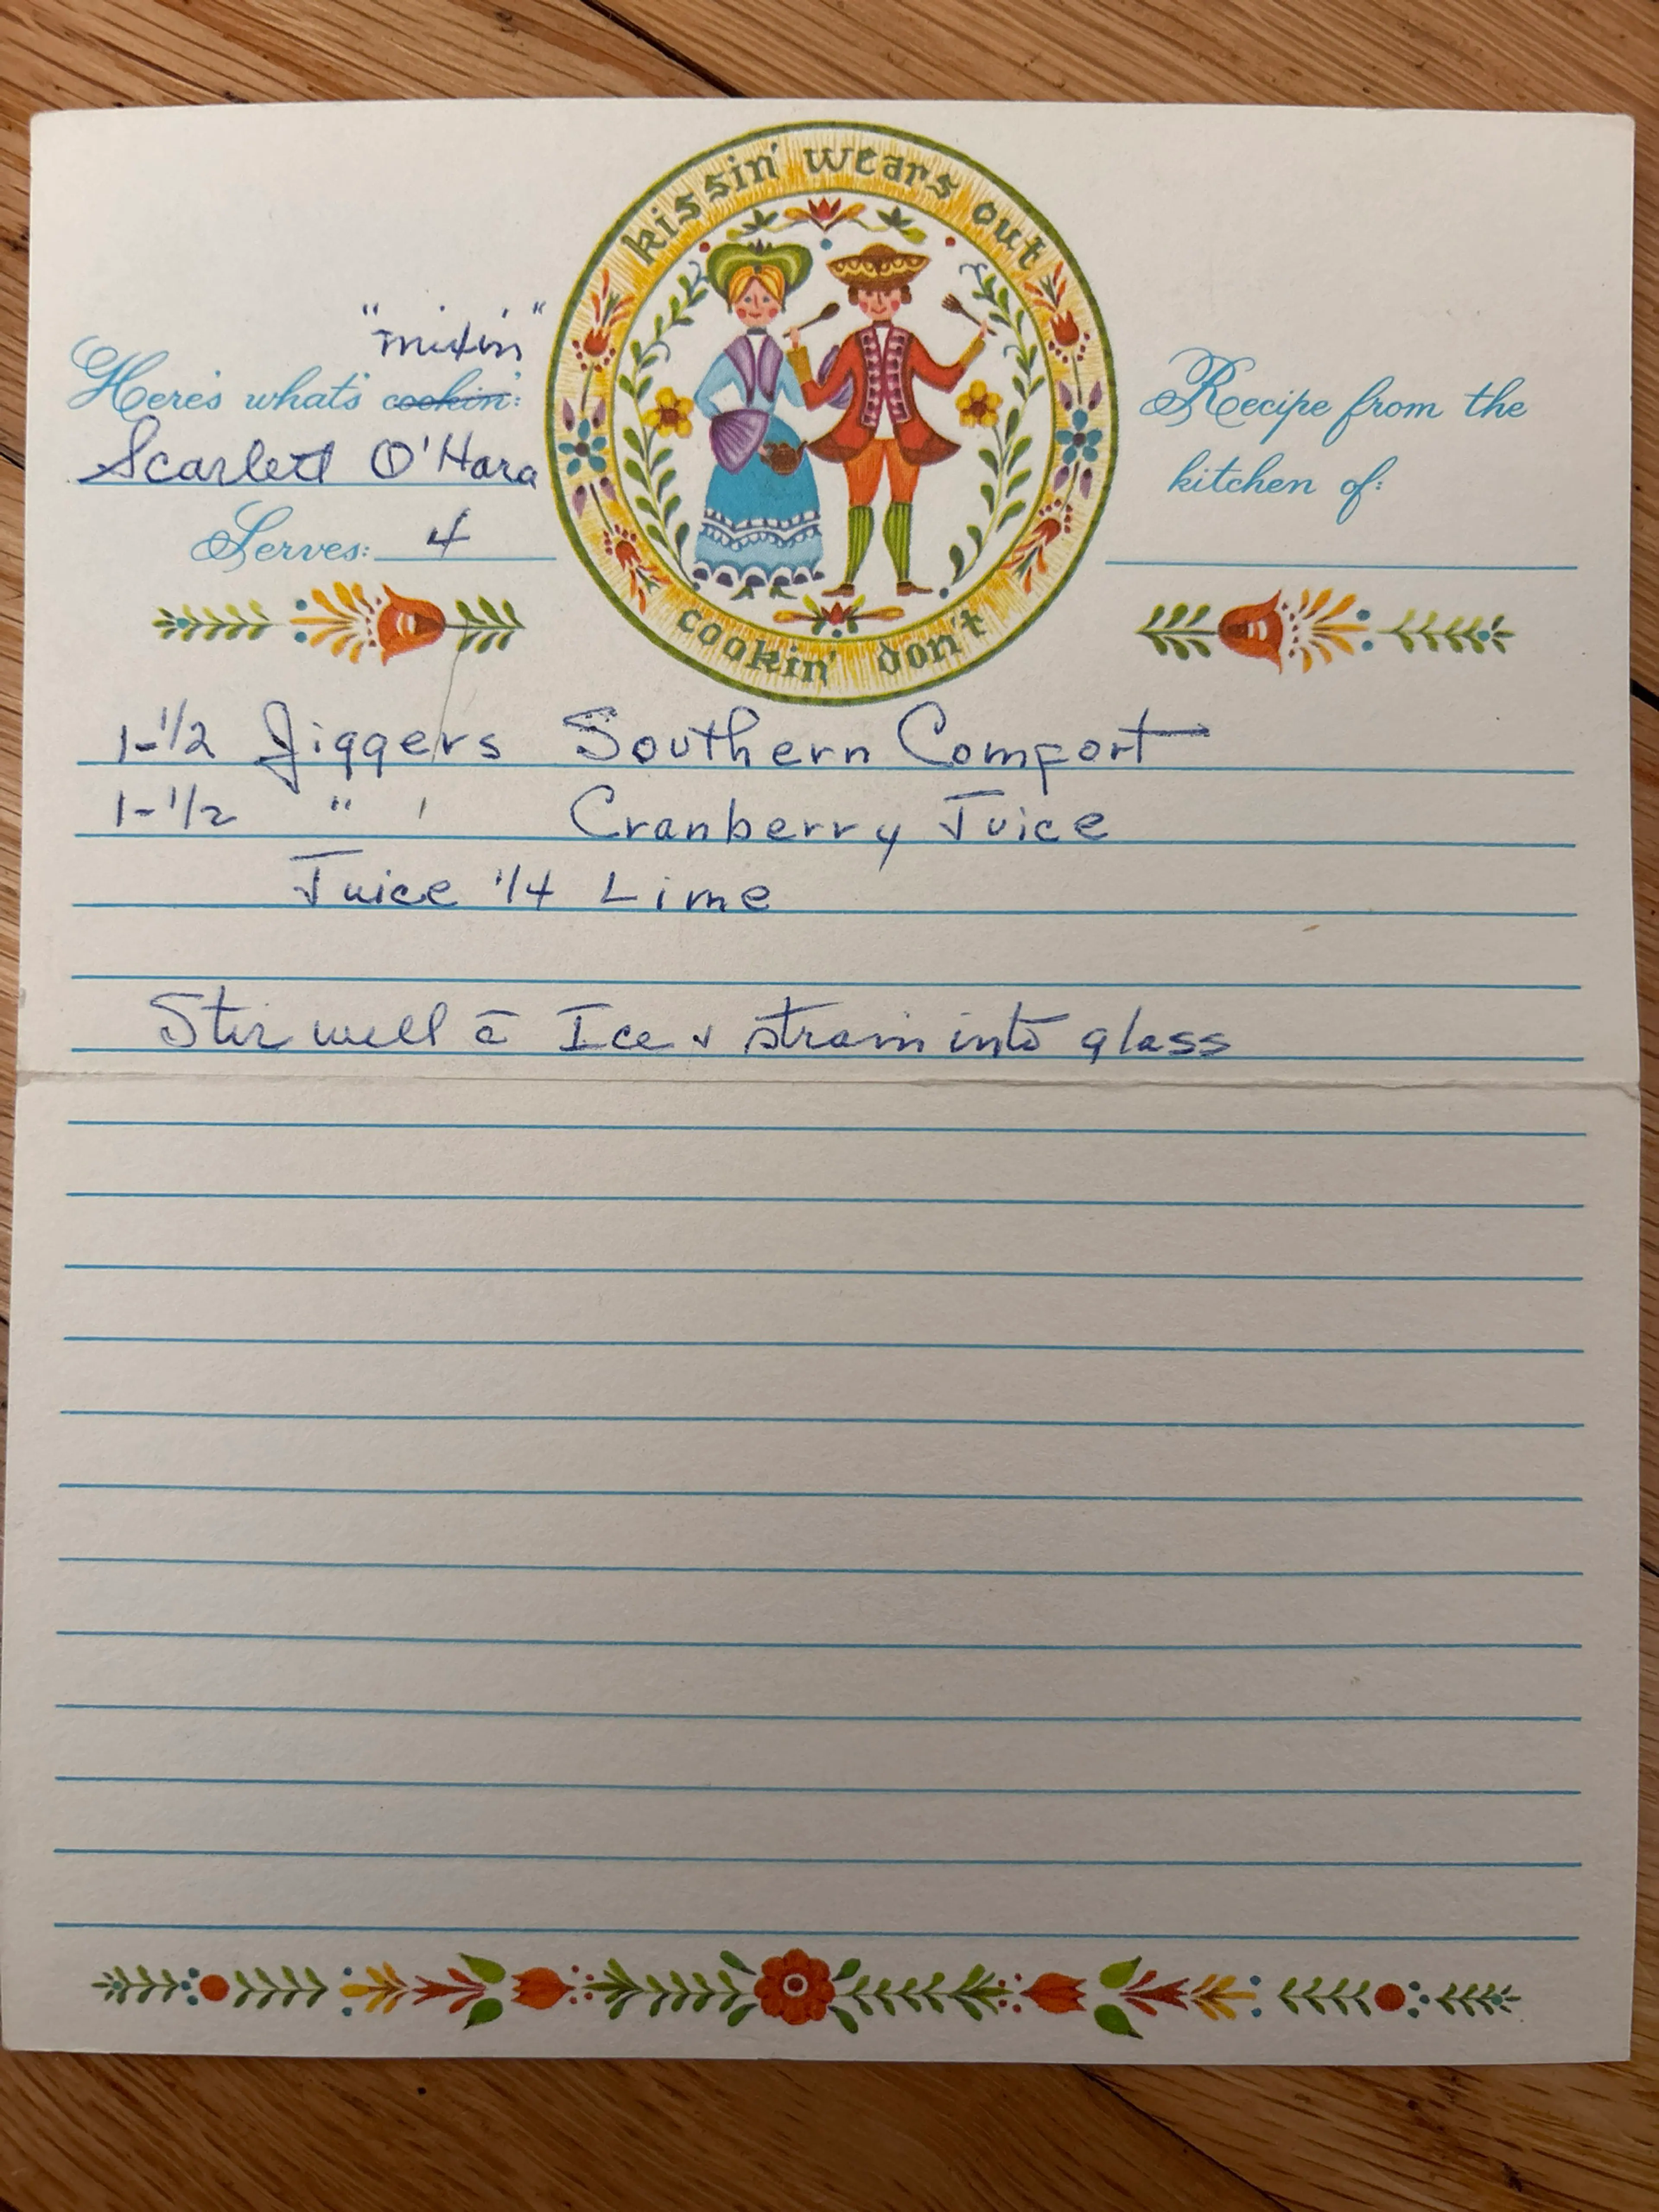 kissin' wears out
cookin' don't
"mixin"
Here's what's cookin':
Scarlett O'Hara
Serves: 4
Recipe from the
kitchen of:
1-1/2 Jiggers Southern Comfort
1-1/2 " ' Cranberry Juice
Juice 1/4 Lime
Stir well c̄ Ice & strain into glass